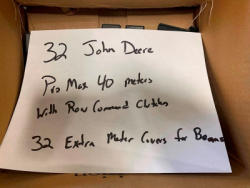 32 John Deere
Pro Max 40 meters
With Row Command Clutches
32 Extra Meter Covers for Beans